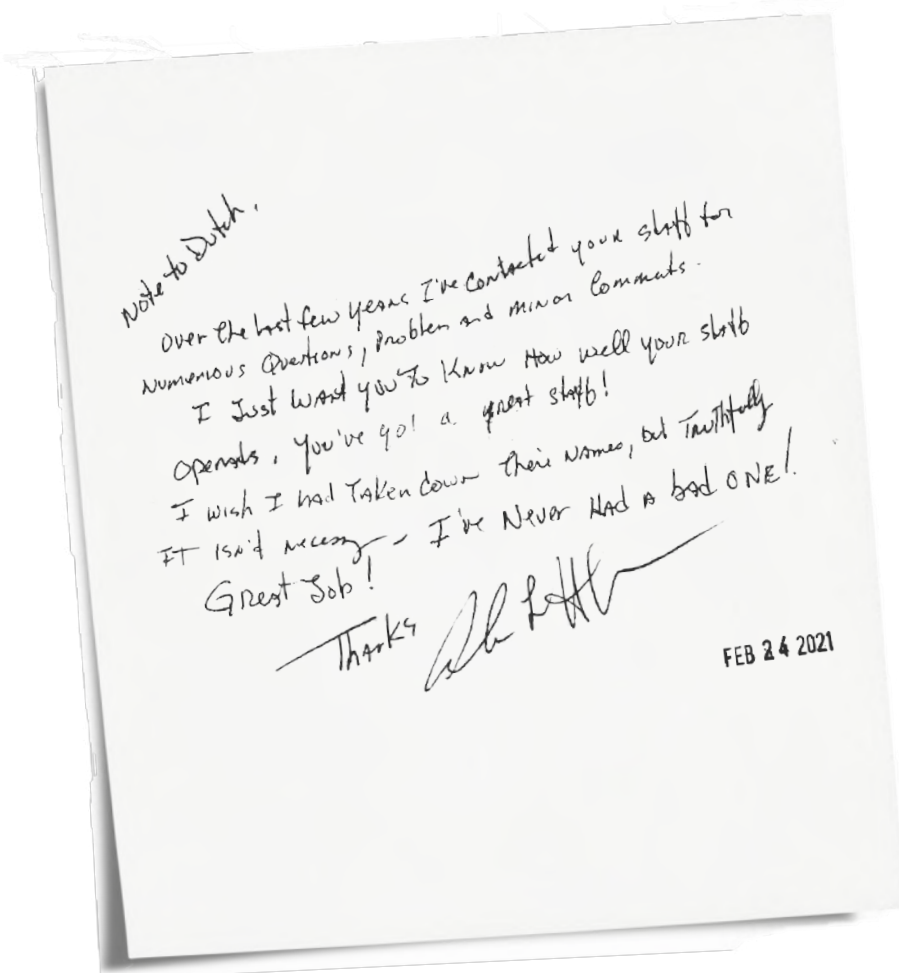 Note to Dutch,
Over the last few years I've contacted your staff for
numerous Questions, problem and minor Comments.
I Just want you to Know How well your staff
operates. You've got a great staff!
I wish I had Taken down their names, but Truthfully
IT isn't necessary - I've Never Had a bad ONE!
Great Job!
Thanks
FEB 24 2021